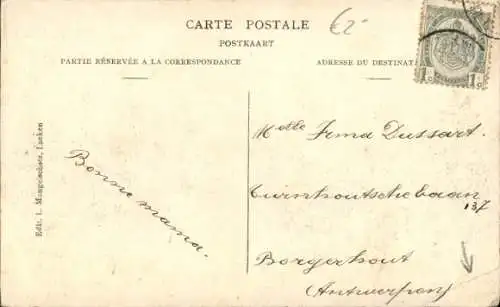 CARTE POSTALE
€2-
POSTKAART
PARTIE RÉSERVÉE A LA CORRESPONDANCE
ADRESSE DU DESTINAT
1c 1c
Edit. L. Mangelschots, Laeken
Bonne mama.
Melle Irma Dussart.
Turnhoutsche baan
137
Borgerhout
(Antwerpen)